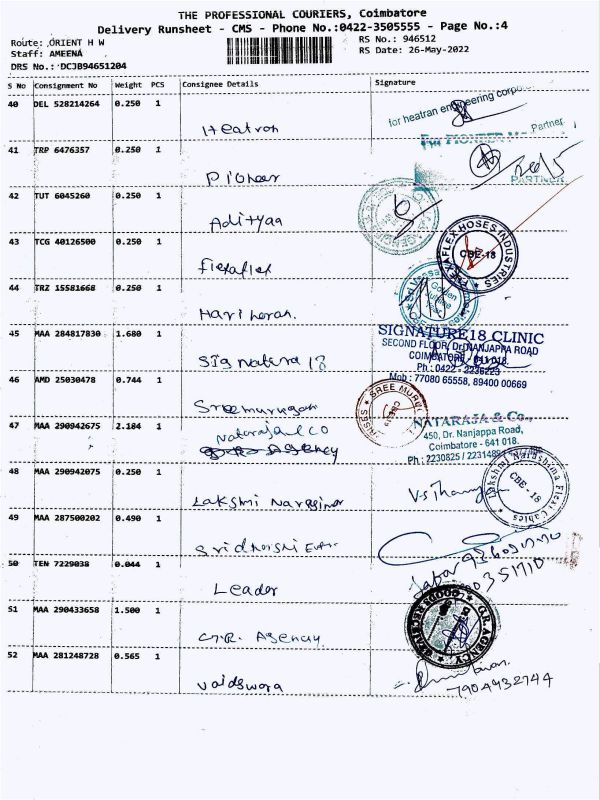 THE PROFESSIONAL COURIERS, Coimbatore
Delivery Runsheet - CMS - Phone No.:0422-3505555 - Page No.:4
Route: ORIENT H W
RS No.: 946512
Staff: AMEENA
RS Date: 26-May-2022
DRS No.: DCJB94651204
S No Consignment No Weight PCS Consignee Details Signature
40 DEL 528214264 0.250 1
for heatran engineering
Heatron
Partner
41 TRP 6476357 0.250 1
Pioneer
PARTNER
42 TUT 6045260 0.250 1
Adityaa
43 TCG 40126500 0.250 1
FLEXAFLEX HOSES INDUSTRIES
CBE-18
Flexaflex
44 TRZ 15581668 0.250 1
Hariharan.
45 MAA 284817830 1.680 1
SIGNATURE18 CLINIC
SECOND FLOOR, Dr.NANJAPPA ROAD
COIMBATORE - 641 018.
Ph : 0422 - 2236223
Mob : 77080 65558, 89400 00669
Signature 18
46 AMD 25030478 0.744 1
SREE MURUGAN
Sreemurugan
47 MAA 290942675 2.184 1
NATARAJA & Co.,
450, Dr. Nanjappa Road,
Coimbatore - 641 018.
Nataraja & CO
Agency
48 MAA 290942075 0.250 1
Lakshmi Narashima Flexi Cables
CBE - 18
49 MAA 287500202 0.490 1
50 TEN 7229038 0.044 1
Leader
51 MAA 290433658 1.500 1
G.R. AGENCY
G.R. Agency
52 MAA 281248728 0.565 1
Vaidswora
7904932744